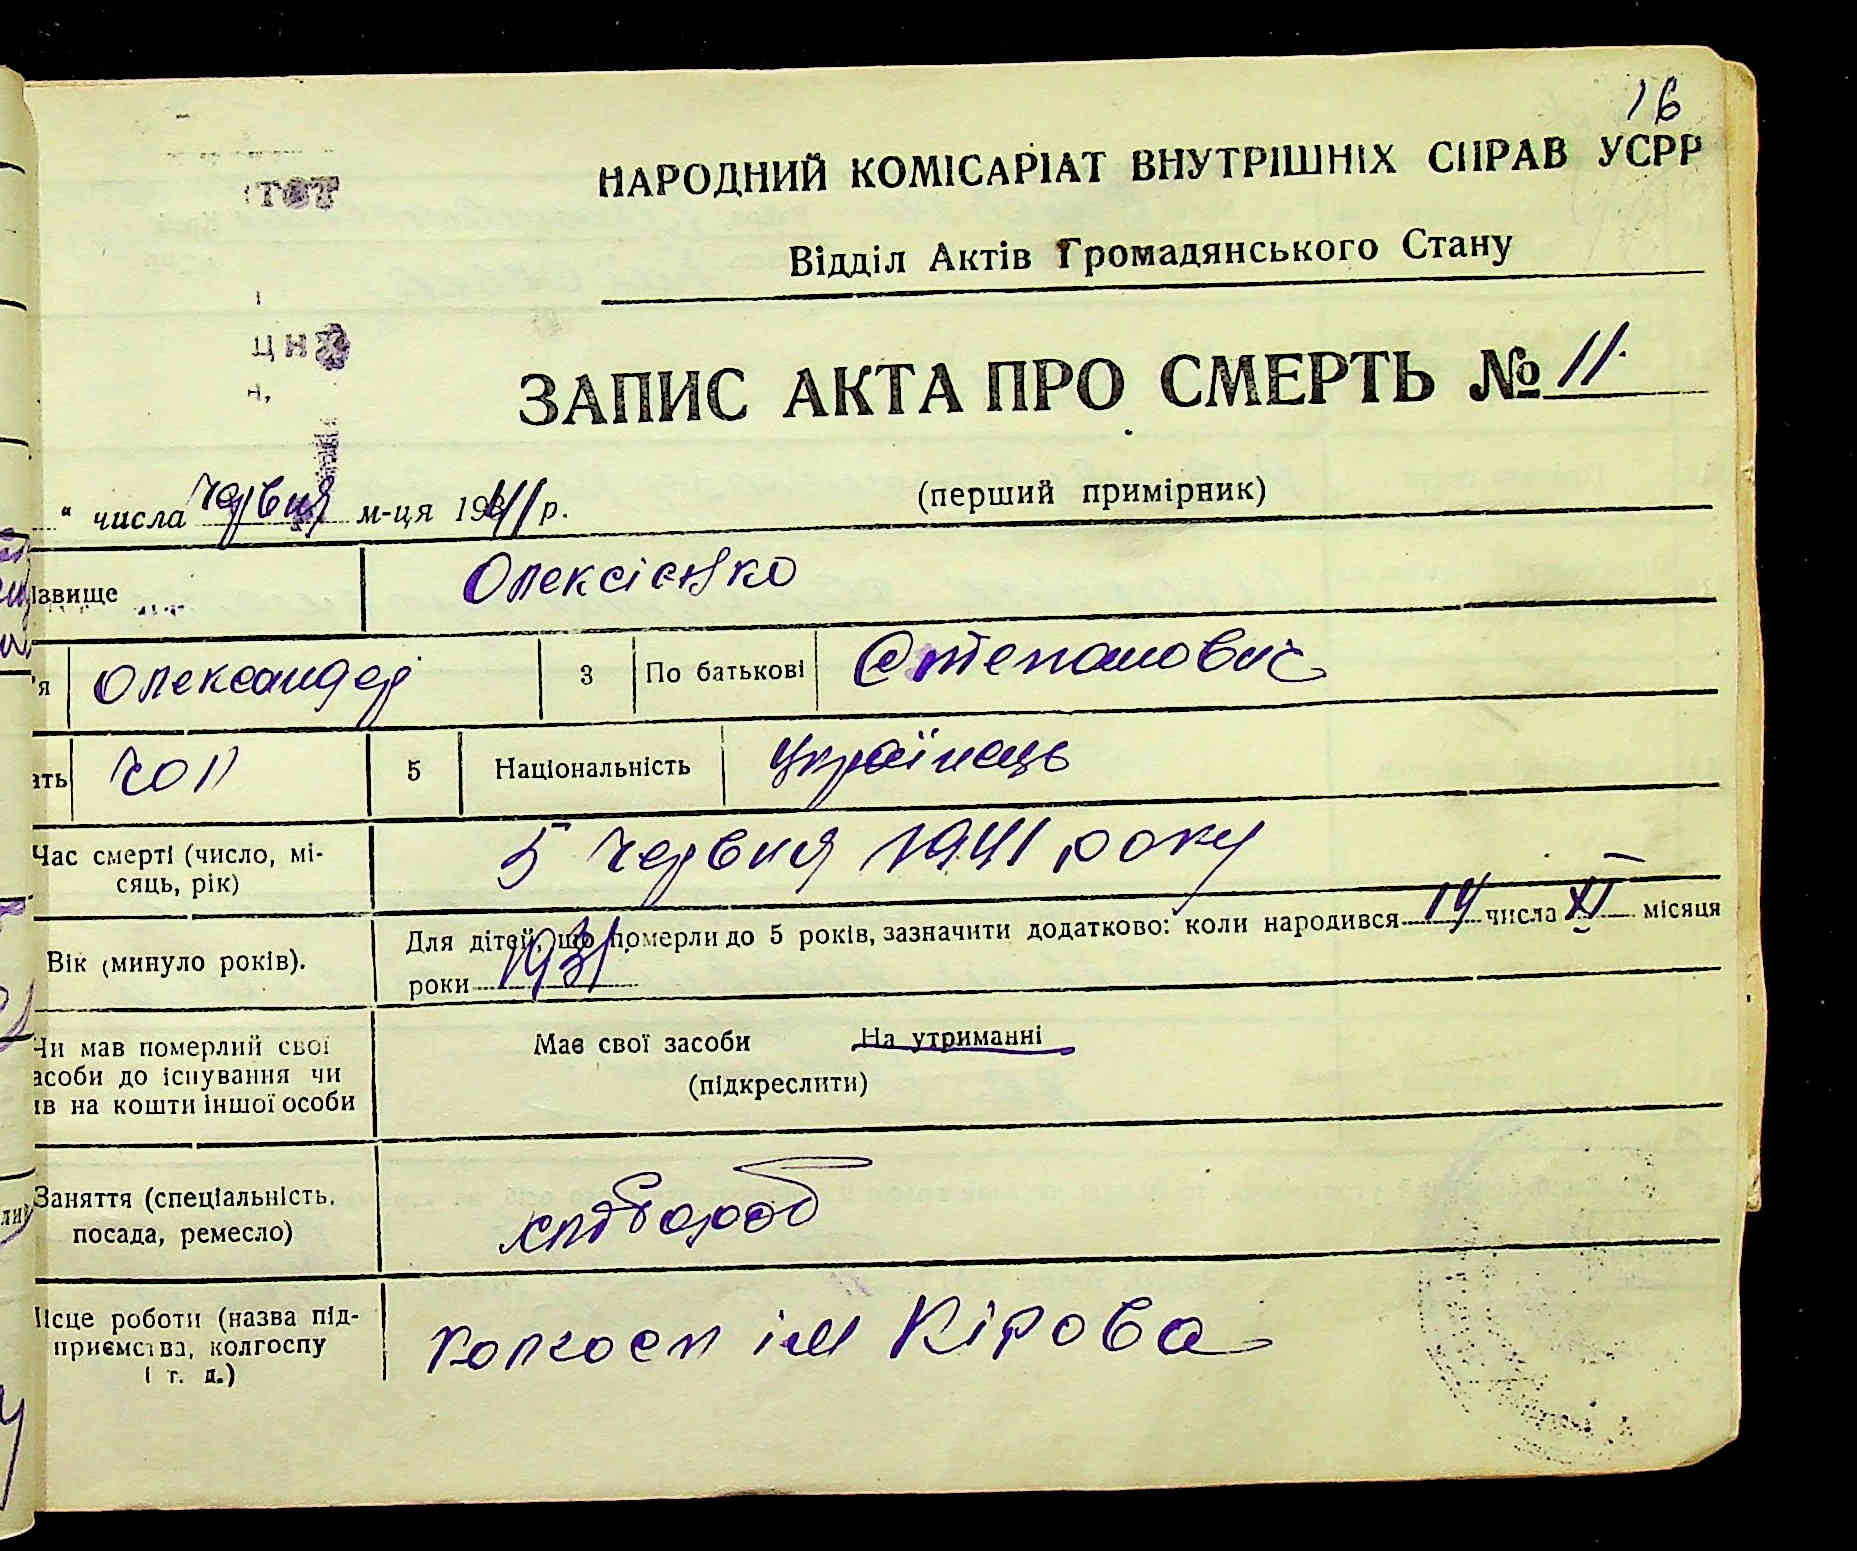 16
НАРОДНИЙ КОМІСАРІАТ ВНУТРІШНІХ СПРАВ УСРР
Відділ Актів Громадянського Стану
ЗАПИС АКТА ПРО СМЕРТЬ № 11.
(перший примірник)
" числа червня м-ця 1941 р.
ізвище Олексієнко
'я Олександер 3 По батькові Степанович
ать чол 5 Національність Українець
Час смерті (число, мі-
сяць, рік) 5 червня 1941 року
Вік (минуло років). Для дітей, що померли до 5 років, зазначити додатково: коли народився 14 числа XI місяця
роки 1931
Чи мав померлий свої
асоби до існування чи
ів на кошти іншої особи
Має свої засоби На утриманні
(підкреслити)
Заняття (спеціальність,
посада, ремесло) хлібороб
ісце роботи (назва під-
приємства, колгоспу
і т. д.)
Колгосп ім Кірова